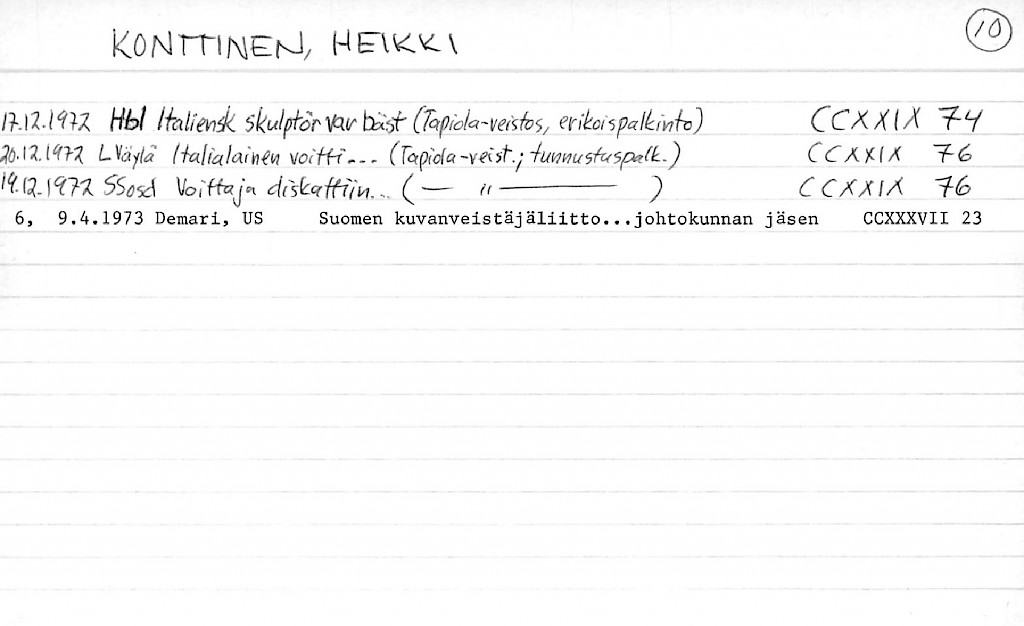 KONTTINEN, HEIKKI 10
17.12.1972 Hbl Italiensk skulptör var bäst (Tapiola-veistos, erikoispalkinto) CCXXIX 74
20.12.1972 LVäylä Italialainen voitti... (Tapiola-veist.; tunnustuspalk.) CCXXIX 76
19.12.1972 SSosd Voittaja diskattiin... (— " —) CCXXIX 76
6, 9.4.1973 Demari, US Suomen kuvanveistäjäliitto...johtokunnan jäsen CCXXXVII 23